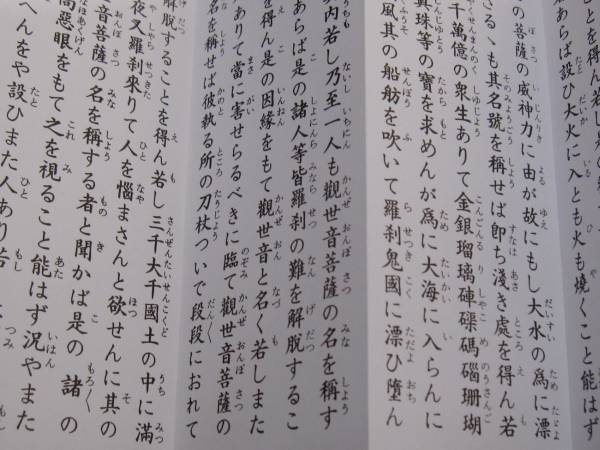 ことを得ん
あらば設ひ大火に入とも火も燒くこと能はず
の菩薩の威神力に由が故にもし大水の爲に漂
さるゝも其名號を稱せば卽ち淺き處を得ん若
千萬億の衆生ありて金銀瑠璃硨磲碼碯珊瑚
眞珠等の寶を求めんが爲に大海に入らんに
風其の船舫を吹いて羅刹鬼國に漂ひ墮ん
其内若し乃至一人も觀世音菩薩の名を稱す
あらば是の諸人等皆羅刹の難を解脫するこ
を得ん是の因緣をもて觀世音と名く若しまた
ありて當に害せらるべきに臨て觀世音菩薩の
名を稱せば彼執る所の刀杖ついで段段におれて
解脫することを得ん若し三千大千國土の中に滿
夜叉羅刹來りて人を惱まさんと欲せんに其の
音菩薩の名を稱する者と聞かば是の諸の
惡眼をもて之を視ること能はず況やまた
へんをや設ひまた人あり若